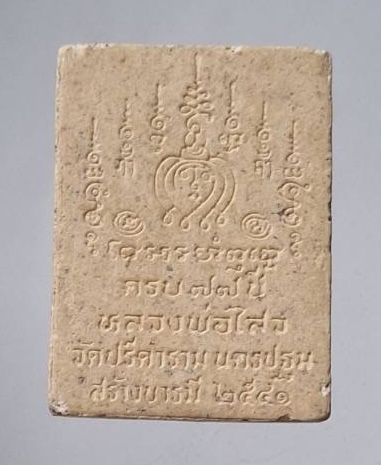 ครบ ๗๗ ปี
หลวงพ่อไสว
วัดปรีดาราม นครปฐม
สร้างบารมี ๒๕๔๑